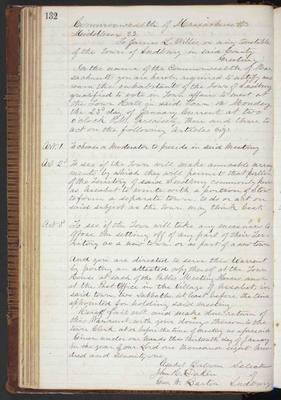 132
Commonwealth of Massachusetts
Middlesex SS.
To James L. Willis or any Constable
of the Town of Sudbury in said County
Greeting
In the name of the Commonwealth of Mas
sachusetts you are hereby required to notify and
warn the inhabitants of the Town of Sudbury
qualified to vote in Town affairs to meet at
the Town Hall in said Town on Monday
the 23d day of January Current at two
o'clock P.M. then and there to
act on the following Articles viz:
Art 1. To choose a Moderator to preside in said Meeting
Art 2d To see if the Town will make amicable arrange
ments by which they will permit that portion
of the Territory of said Sudbury commonly known
as Assabet to with a portion of Stow
to form a separate town, to do or act on
said subject as the Town may think best
Art 3d To see if the Town will take any measures to
oppose the setting off of any part of their Ter
ritory as a new town or as part of a new town
And you are directed to serve this Warrant
by posting an attested copy thereof at the Town
House at each of the Public Meeting Houses and
at the Post Office in the Village of Assabet in
said town, two Sabbaths at least before the time
appointed for holding said meeting
Hereof fail not and make due return of
this Warrant with your doings thereon to the
Town Clerk at or before the time of meeting as aforesaid
Given under our hands this thirteenth day of January
in the year of our Lord one thousand eight hun
dred and seventy one
Selectmen
of
Geo. W. Sudbury